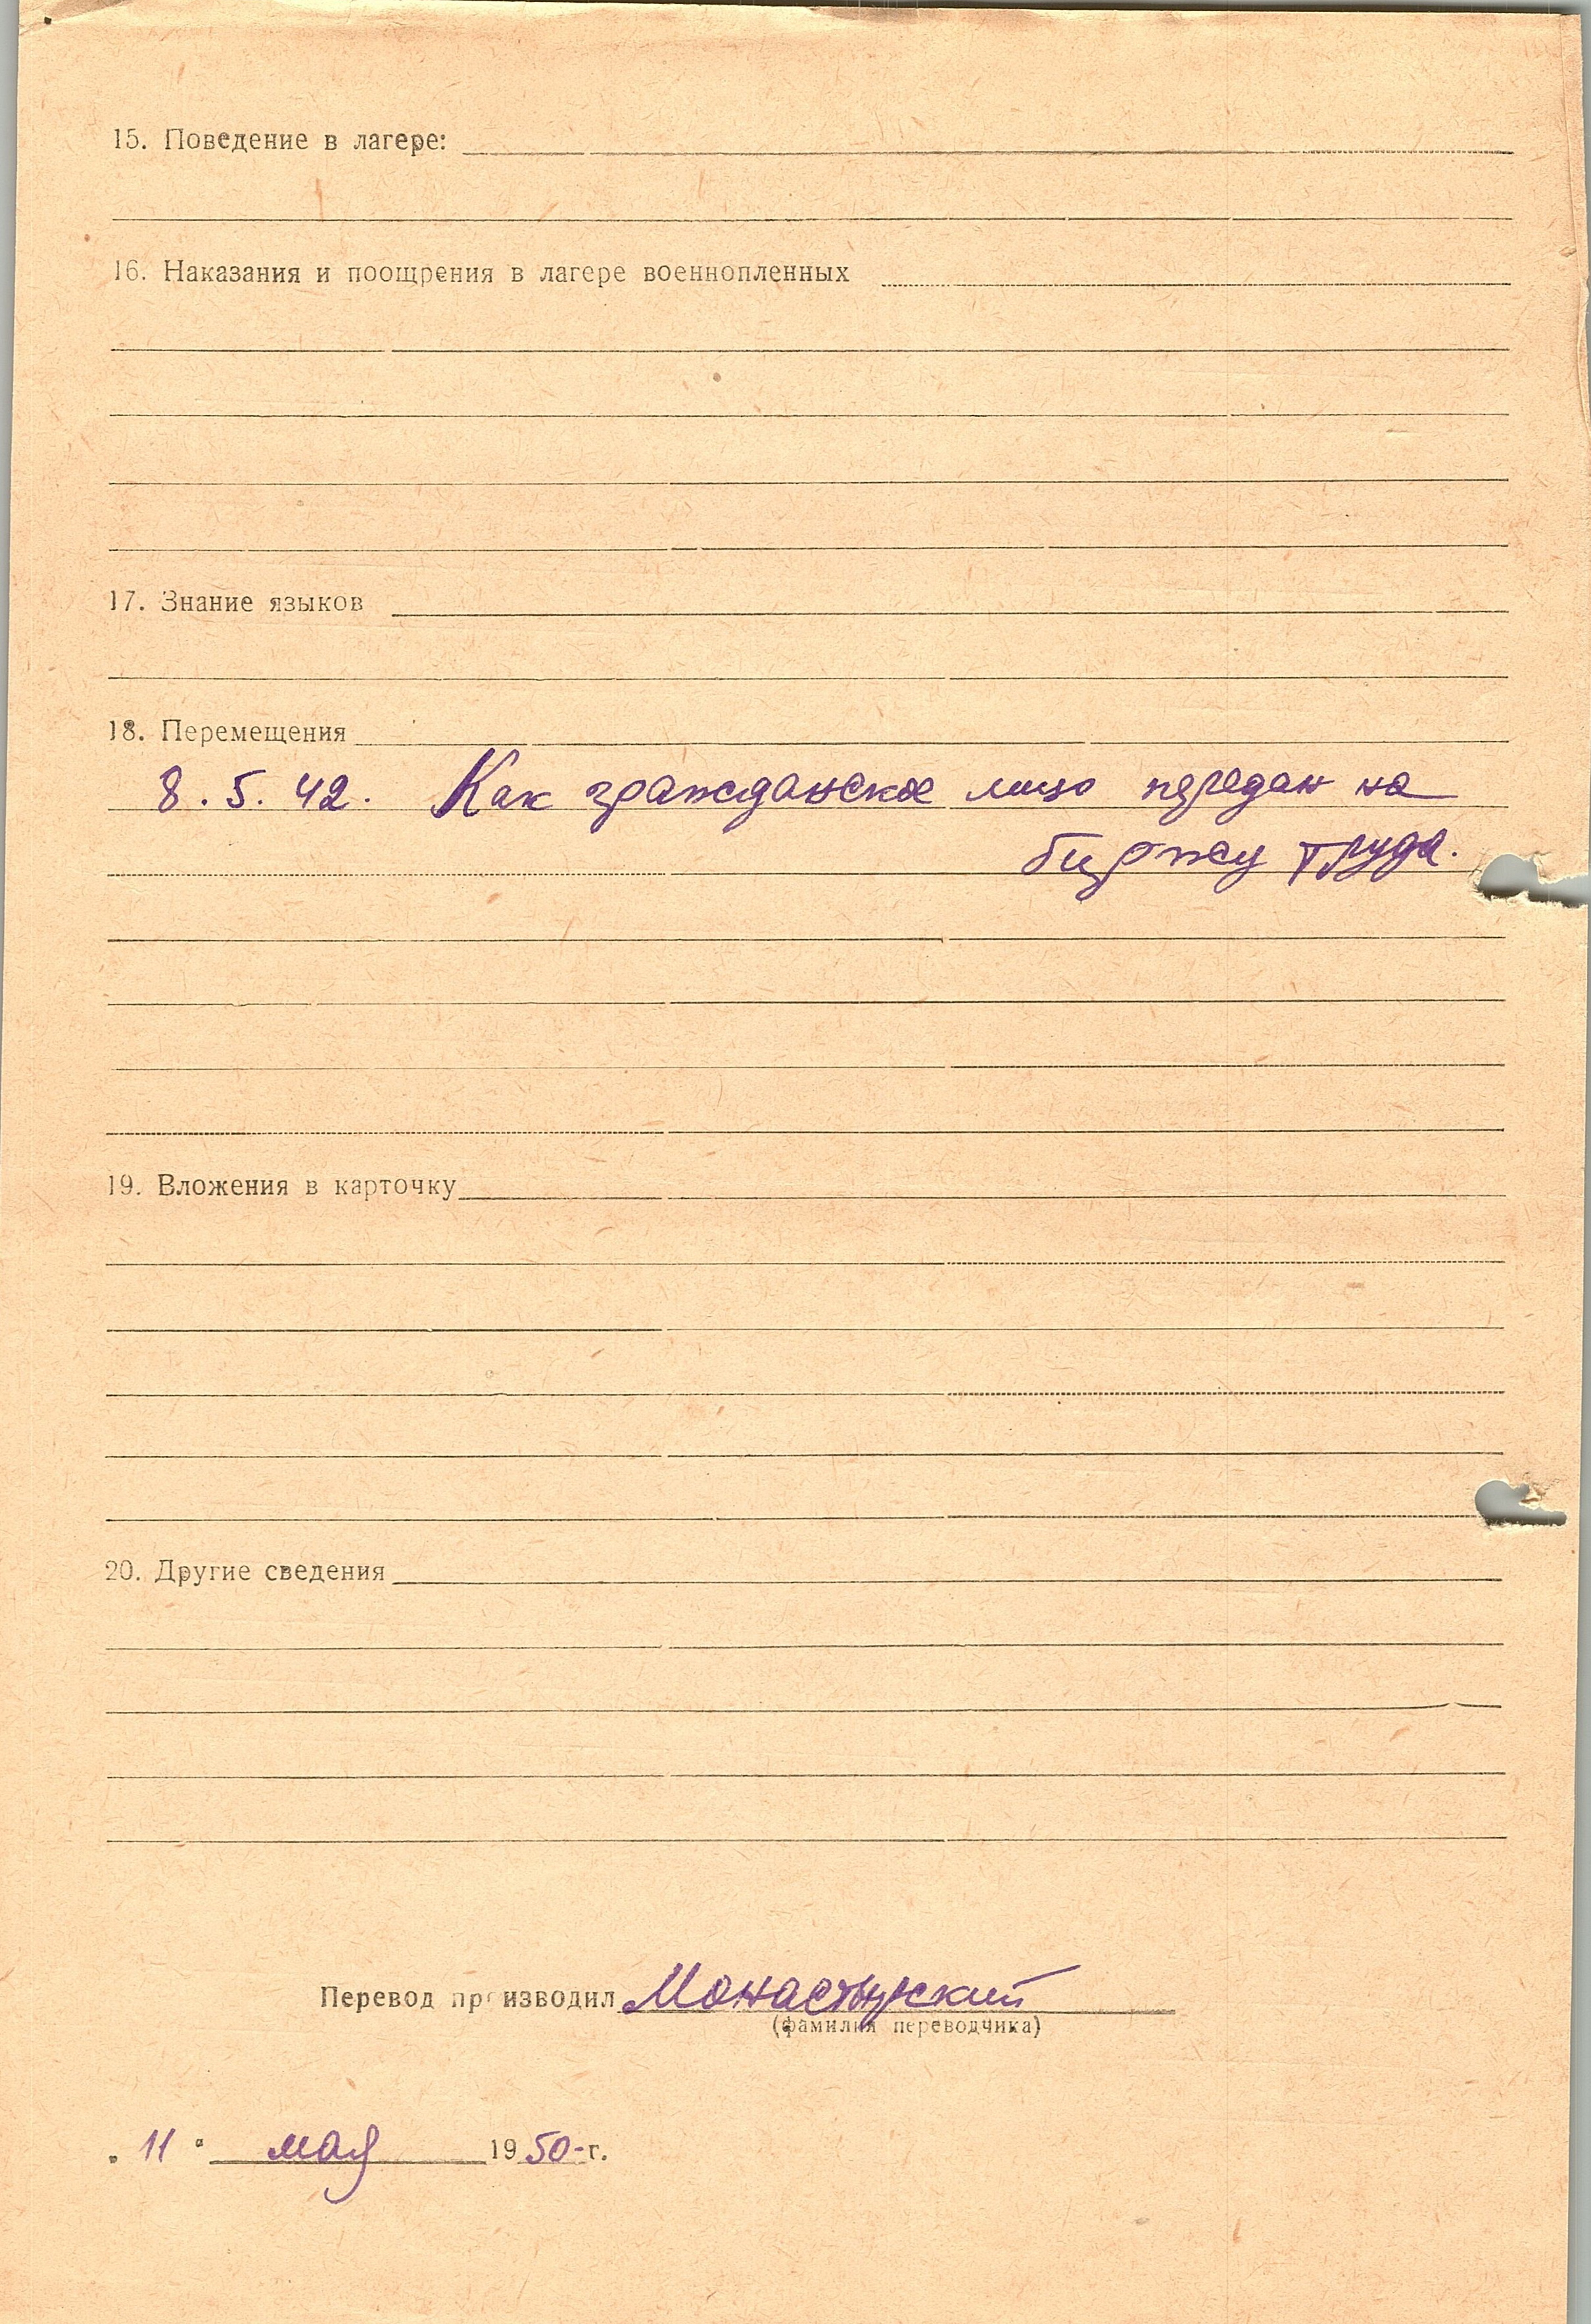 15. Поведение в лагере:
16. Наказания и поощрения в лагере военнопленных
17. Знание языков
18. Перемещения
8.5.42. Как гражданское лицо передан на
биржу труда.
19. Вложения в карточку
20. Другие сведения
Перевод производил Монастырский
(фамилия переводчика)
„11“ мая 1950-г.